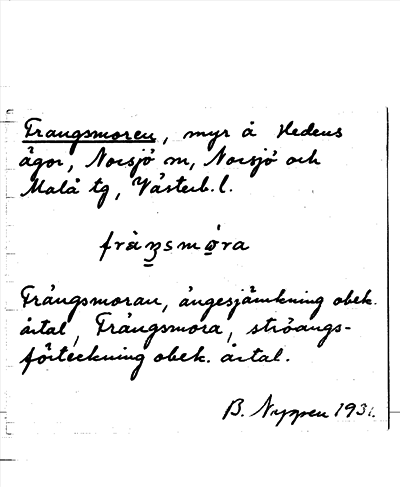 Frangsmoren, myr å Hedens
ägor, Norsjö sn, Norsjö och
Malå tg, Västerb. l.
fràŋsmó̱ra
Frångsmoran, ängesjämkning obek.
årtal, Frångsmora, ströängs-
förteckning obek. årtal.
B. Nygren 1931.